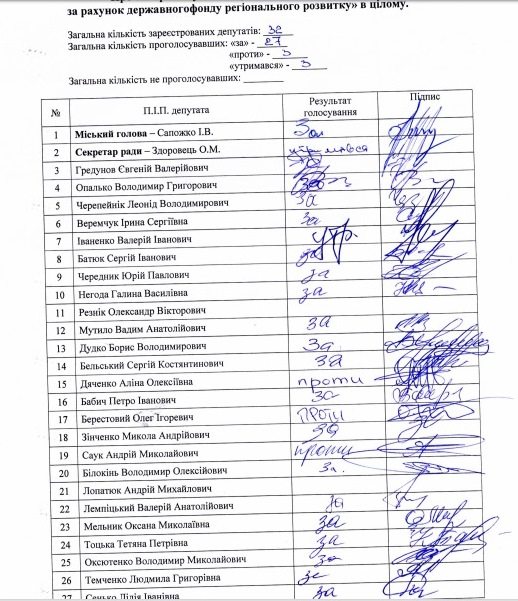 за рахунок державногофонду регіонального розвитку» в цілому.
Загальна кількість зареєстрованих депутатів:
Загальна кількість проголосувавших: «за» - 27
«проти» - 3
«утримався» - 3
Загальна кількість не проголосувавших:
№ П.І.П. депутата Результат голосування Підпис
1 Міський голова – Сапожко І.В.
2 Секретар ради – Здоровець О.М. утримався
3 Гредунов Євгеній Валерійович
4 Опалько Володимир Григорович
5 Черепейнік Леонід Володимирович за
6 Веремчук Ірина Сергіївна за
7 Іваненко Валерій Іванович утр.
8 Батюк Сергій Іванович за
9 Чередник Юрій Павлович за
10 Негода Галина Василівна за
11 Резнік Олександр Вікторович
12 Мутило Вадим Анатолійович за
13 Дудко Борис Володимирович за
14 Бельський Сергій Костянтинович за
15 Дяченко Аліна Олексіївна проти
16 Бабич Петро Іванович за
17 Берестовий Олег Ігоревич проти
18 Зінченко Микола Андрійович за
19 Саук Андрій Миколайович проти
20 Білокінь Володимир Олексійович за.
21 Лопатюк Андрій Михайлович
22 Лемпіцький Валерій Анатолійович за
23 Мельник Оксана Миколаївна за
24 Тоцька Тетяна Петрівна за
25 Оксютенко Володимир Миколайович за
26 Темченко Людмила Григорівна за
27 Сенько Лілія Іванівна за